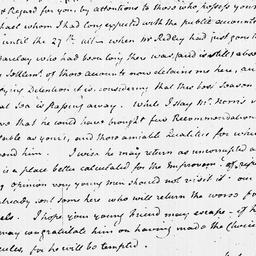 & Regard for you, by attentions to those who possess your
hael whom I had long expected with the public accounts
until the 27th ultm when Mr Ridley had just gone th
Barclay who had been long there was, (and is still) abse
Settlemt. of those accounts now detains me here, an
ying detention it is, considering that the best Season
at Sea is passing away. While I stay Mr. Norris's v
ure that he could have brought few Recommendation
table as yours, and those amiable Qualities for whic
mend him. I wish he may return as uncorrupted a
is a place better calculated for the Improvemt. of, espe
my opinion very young men should not visit it: our
already sent some here who will return the worse fo
els. I hope your young Friend may escape - if h
may congratulate him on having made the Choice
cules, for he will be tempted.